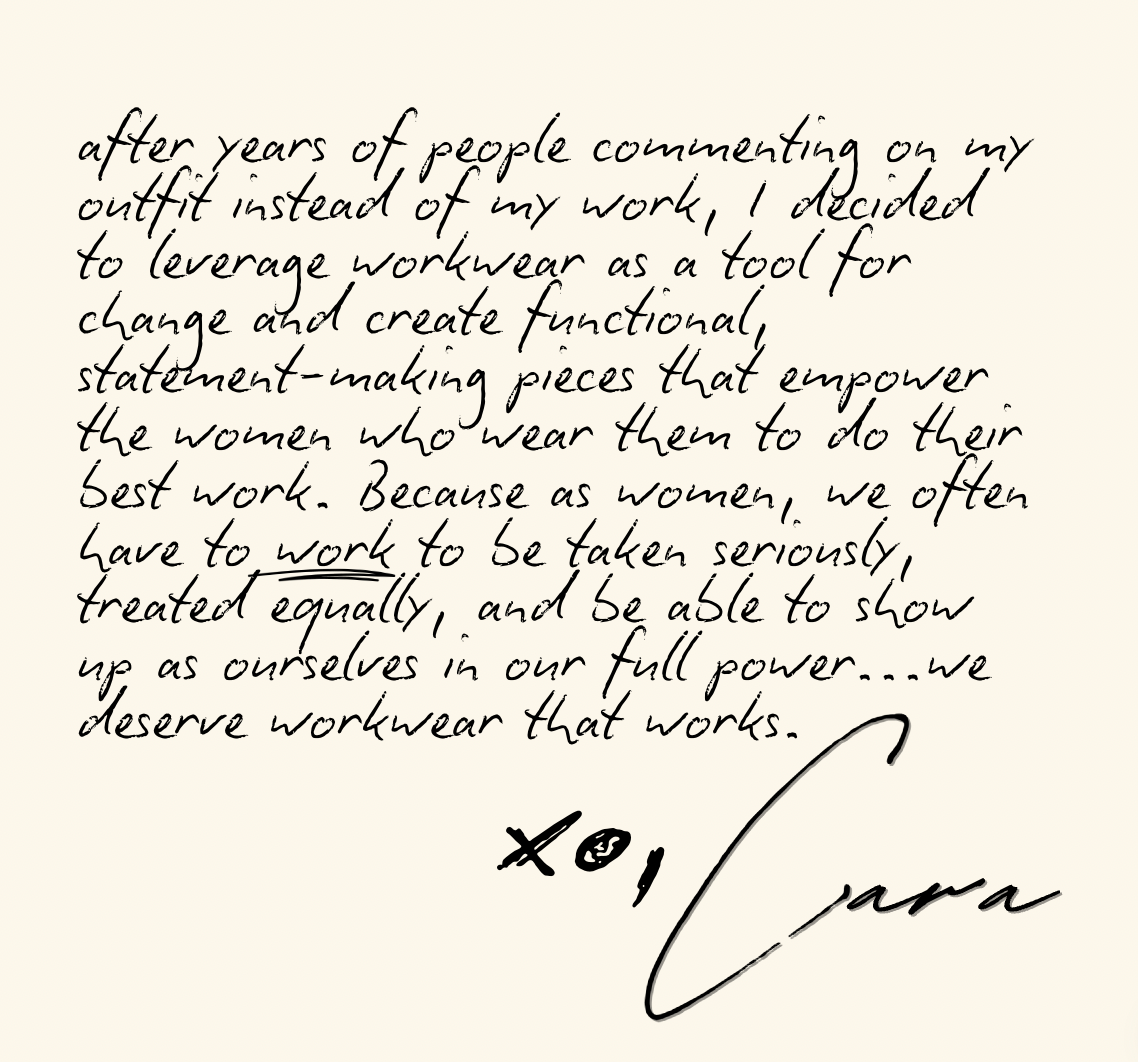 after years of people commenting on my
outfit instead of my work, I decided
to leverage workwear as a tool for
change and create functional,
statement-making pieces that empower
the women who wear them to do their
best work. Because as women, we often
have to work to be taken seriously,
treated equally, and be able to show
up as ourselves in our full power...we
deserve workwear that works.
xo, Cara